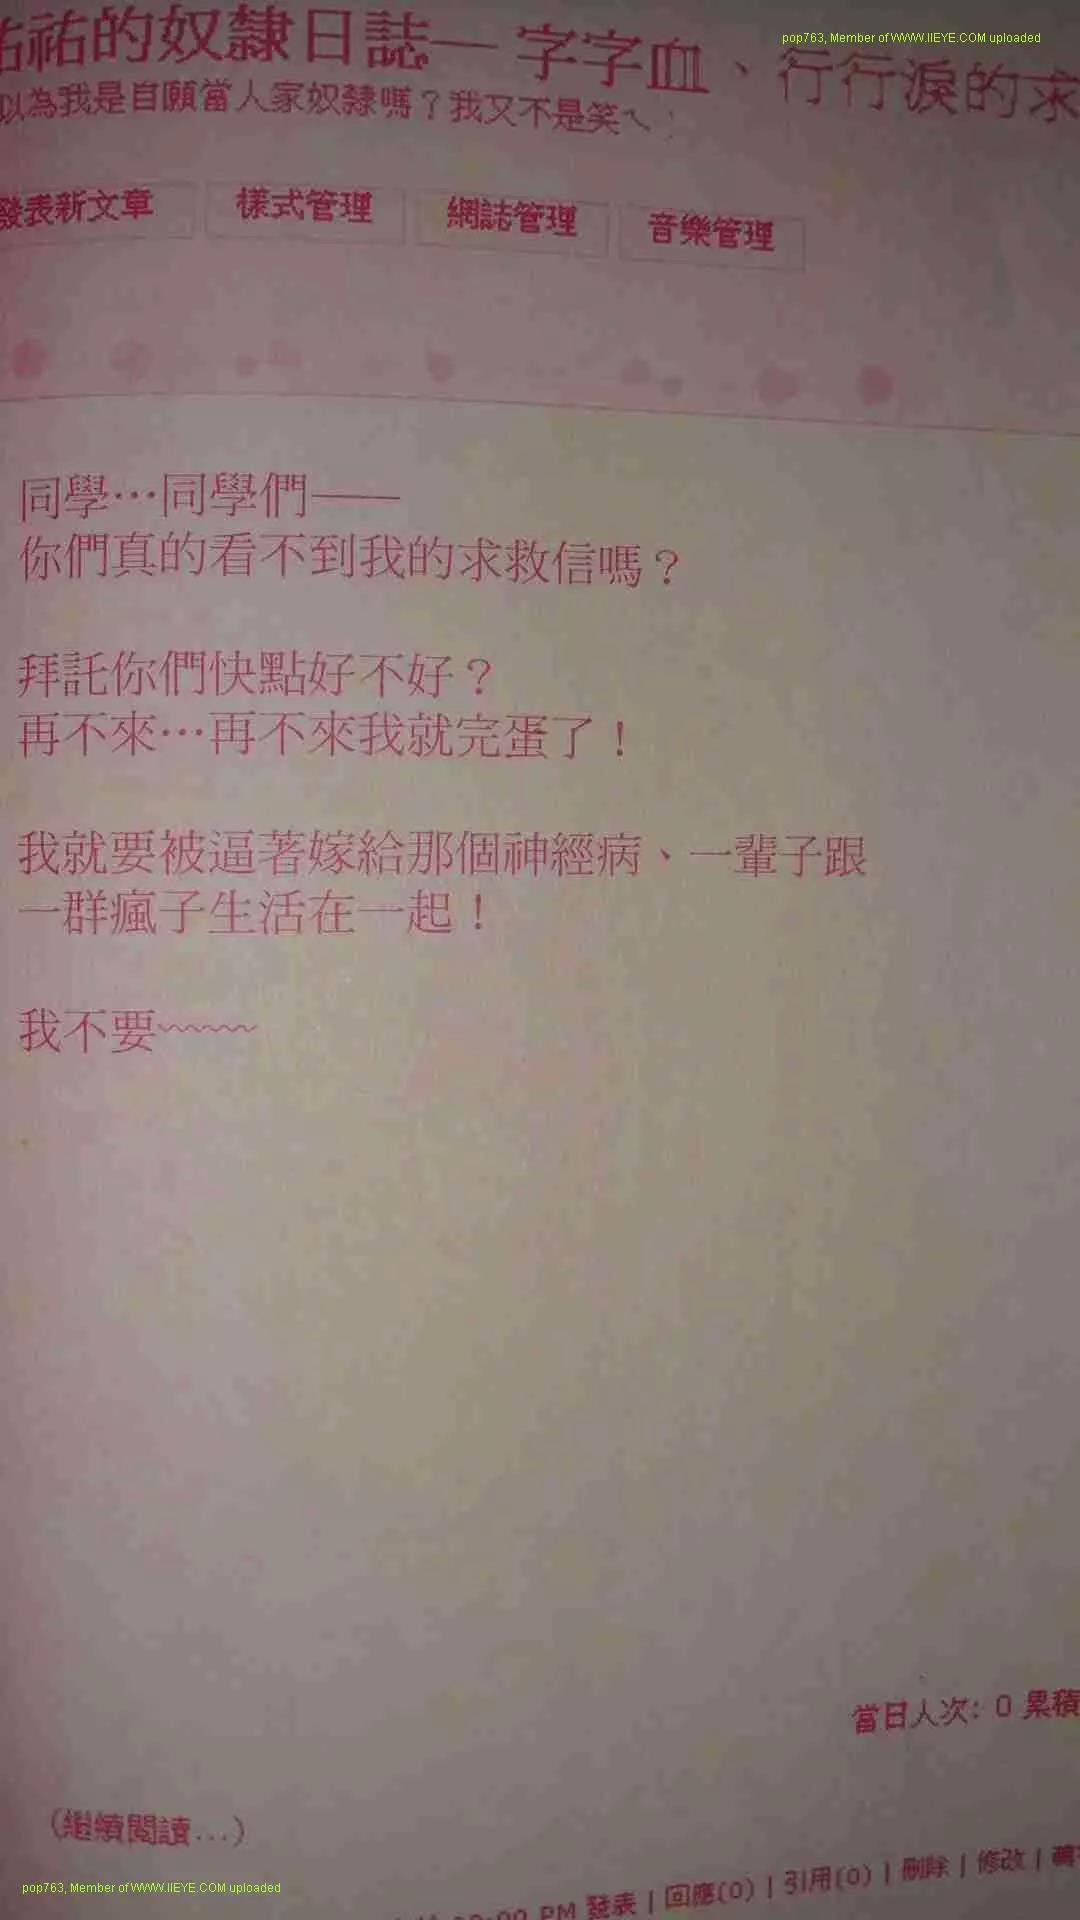 pop763, Member of WWW.IIEYE.COM uploaded
祐祐的奴隸日誌——字字血、行行淚的求
以為我是自願當人家奴隸嗎？我又不是笑ㄟ！
發表新文章 樣式管理 網誌管理 音樂管理
同學…同學們——
你們真的看不到我的求救信嗎？
拜託你們快點好不好？
再不來…再不來我就完蛋了！
我就要被逼著嫁給那個神經病、一輩子跟
一群瘋子生活在一起！
我不要~~~~
當日人次: 0 累積
(繼續閱讀...)
PM 發表 | 回應(0) | 引用(0) | 刪除 | 修改 |
pop763, Member of WWW.IIEYE.COM uploaded